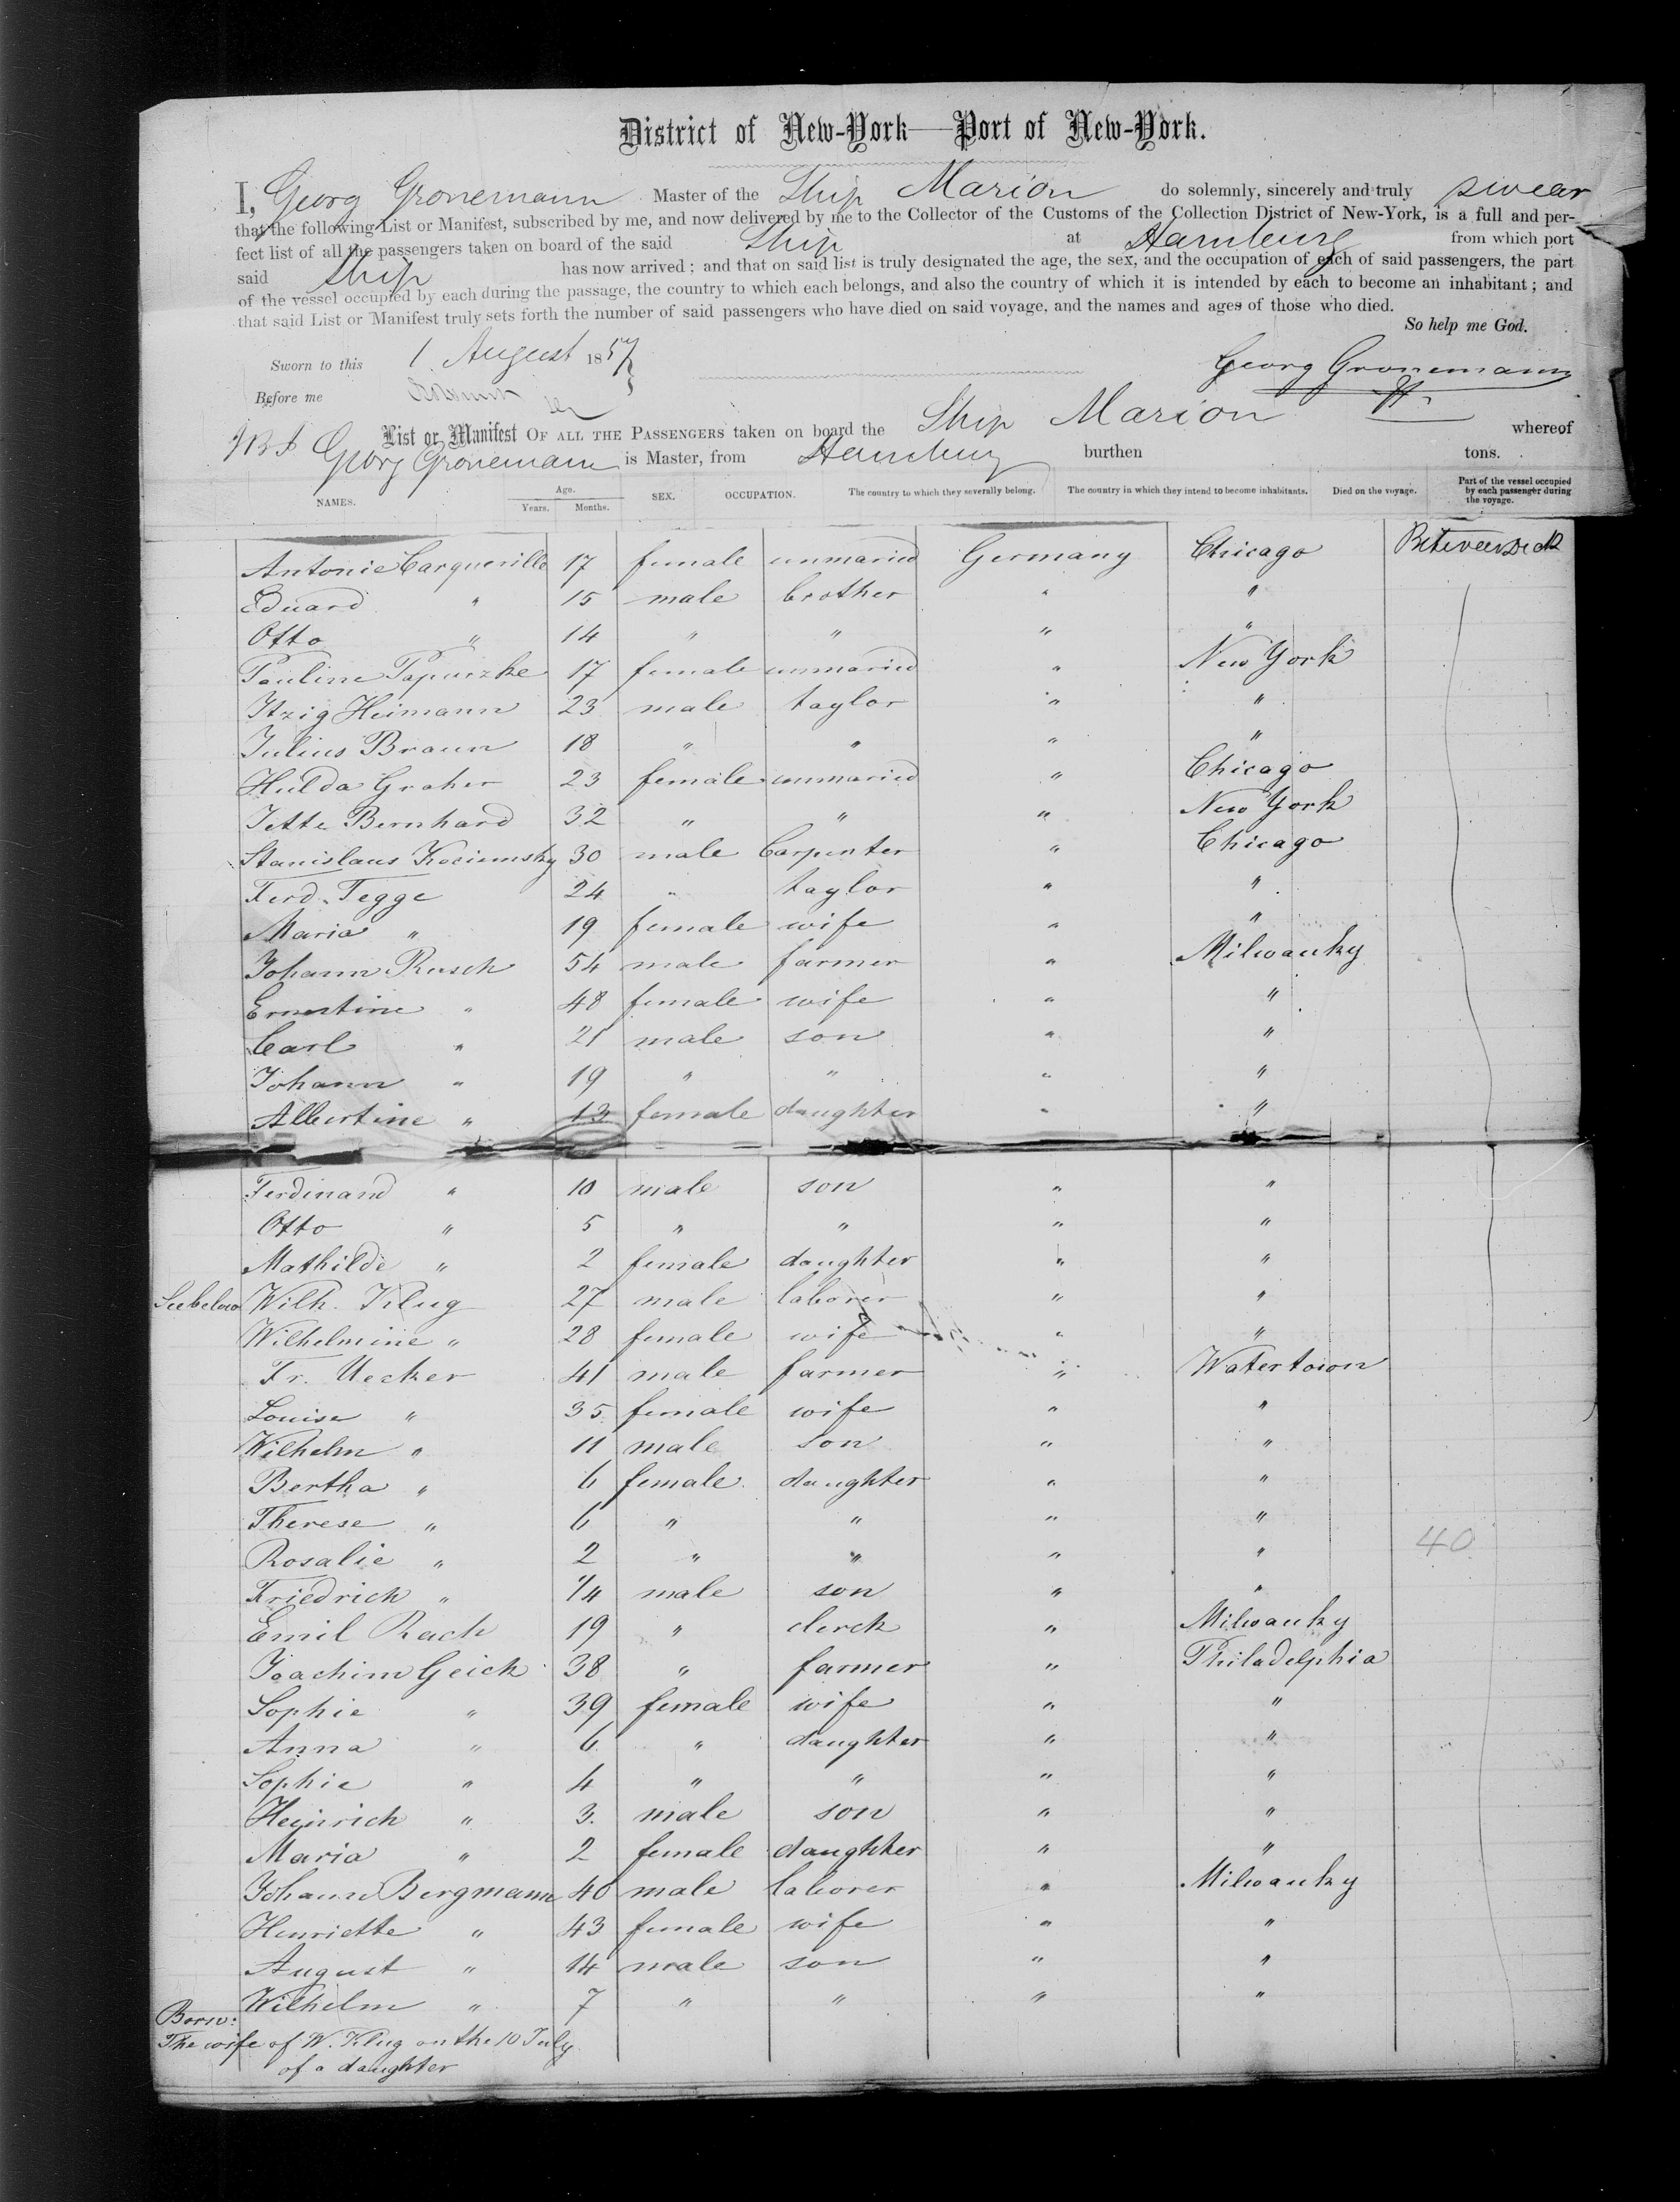 District of New-York—Port of New-York.
I, Georg Gronemann Master of the Ship Marion do solemnly, sincerely and truly swear
that the following List or Manifest, subscribed by me, and now delivered by me to the Collector of the Customs of the Collection District of New-York, is a full and per-
fect list of all the passengers taken on board of the said Ship at Hamburg from which port
said Ship has now arrived; and that on said list is truly designated the age, the sex, and the occupation of each of said passengers, the part
of the vessel occupied by each during the passage, the country to which each belongs, and also the country of which it is intended by each to become an inhabitant; and
that said List or Manifest truly sets forth the number of said passengers who have died on said voyage, and the names and ages of those who died.
So help me God.
Sworn to this 1. August 1857
Georg Gronemann
Before me
List or Manifest OF ALL THE PASSENGERS taken on board the Ship Marion whereof
Georg Gronemann is Master, from Hamburg burthen tons.
NAMES. Age. Years. Months. SEX. OCCUPATION. The country to which they severally belong. The country in which they intend to become inhabitants. Died on the voyage. Part of the vessel occupied by each passenger during the voyage.
Antonie Carqueville 17 female unmaried Germany Chicago Betweendeck
Eduard " 15 male brother " "
Otto " 14 " " " "
Pauline 17 female unmaried " New York
Itzig Heimann 23 male taylor " "
Julius Braun 18 " " " "
Hulda Graher 23 female unmaried " Chicago
Jette Bernhard 32 " " " New York
Stanislaus Kociemsky 30 male Carpenter " Chicago
Ferd. Tegge 24 " taylor " "
Maria " 19 female wife " "
Johann Rusch 54 male farmer " Milwauky
Ernestine " 48 female wife " "
Carl " 21 male son " "
Johann " 19 " " " "
Albertine " 13 female daughter " "
Ferdinand " 10 male son " "
Otto " 5 " " " "
Mathilde " 2 female daughter " "
See below Wilh. Klug 27 male laborer " "
Wilhelmine " 28 female wife " "
Fr. Uecker 41 male farmer " Watertown
Louise " 35 female wife " "
Wilhelm " 11 male son " "
Bertha " 6 female daughter " "
Therese " 6 " " " "
Rosalie " 2 " " " " 40
Friedrich " 1/4 male son " "
Emil Rach 19 " clerck " Milwauky
Joachim Geick 38 " farmer " Philadelphia
Sophie " 39 female wife " "
Anna " 6 " daughter " "
Sophie " 4 " " " "
Heinrich " 3 male son " "
Maria " 2 female daughter " "
Johann Bergmann 40 male laborer " Milwauky
Henriette " 43 female wife " "
August " 14 male son " "
Wilhelm " 7 " " " "
Born:
The wife of W. Klug on the 10 July
of a daughter